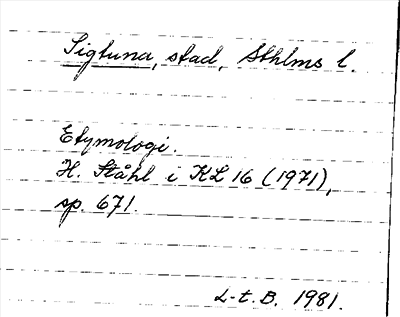 Sigtuna, stad, Sthlms l.
Etymologi.
H. Ståhl i KL 16 (1971),
sp. 671.
L-t. B. 1981.